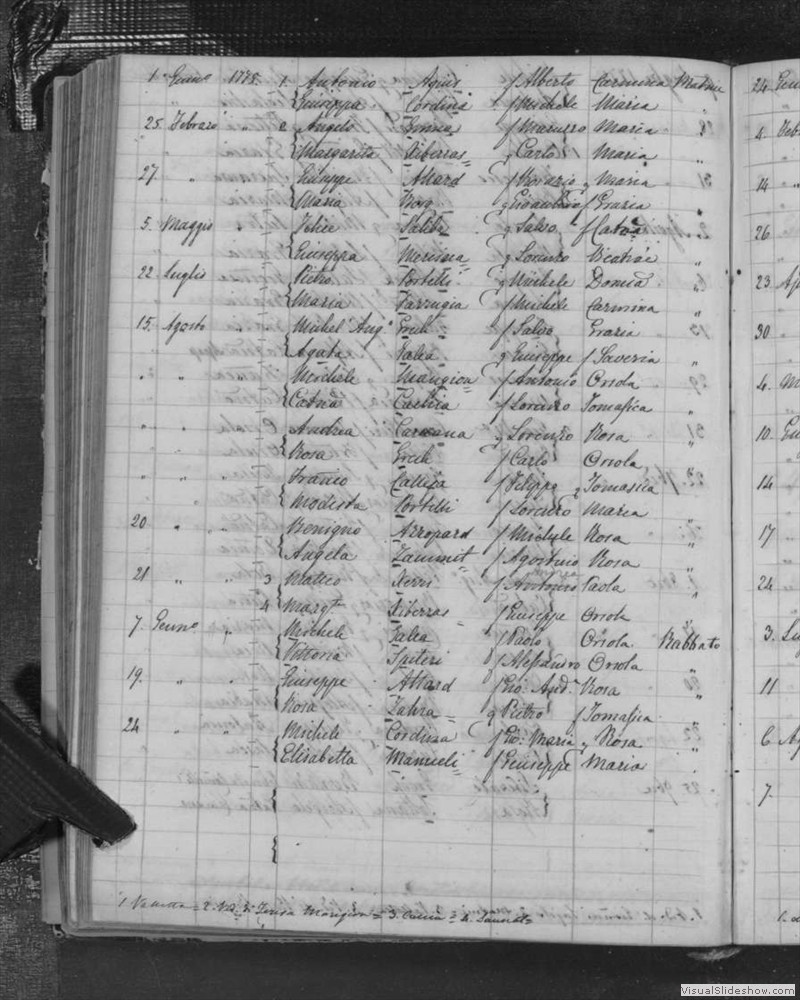 1. Genno 1775. 1. Antonio Agius f Alberto Carmina Matrice
Giuseppa Cordina f Michele Maria
25. Febraro 2 Angelo f Maria
Margarita Xiberras q Carlo Maria "
27. " Giuseppe Attard f Horazio q Maria
Maria f Grazia "
5. Maggio Felice Saliba q Salvo f Catna
Giuseppa Messina q Lorenzo "
22 Luglio Pietro Portelli q Michele Domca
Maria Farrugia f Michele Carmina "
15. Agosto Michel' Ang Grech f Salvo Grazia
Agata Galea q Giuseppe f Saveria "
" " Michele Mangion f Antonio Orsola
Catna f Lorenzo Tomasica "
" " Andrea Caruana q Lorenzo Rosa
Rosa Grech f Carlo Orsola "
" " Franco Calleja f Filippo q Tomasica
Modesta Portelli f Lorenzo Maria
20 " " Benigno Azzopard f Michele Rosa
Angela Zammit f Agostino Rosa "
21 " " 3 Matteo Xerri f Antonio Paola
4 Margta Xiberras f Giuseppe Orsola "
7. Genno " Michele Galea f Paolo Orsola Rabbato
Vittoria Spiteri f Alessandro Orsola
19. " " Giuseppe Attard f Gio: And. Rosa
Rosa Zahra q Pietro f Tomasica "
24 " " Michele Cordina f Gio: Maria q Rosa
Elisabetta Mamueli f Giuseppe Maria
1 Valletta = 2. Teresa Mangion = 3. = 4.
24 Genn
4. Feb
14 "
26 "
23. Ap
30 "
4. M
10. Gi
14 "
17 "
24 "
3. Lu
11 "
6 Ag
7. "
VisualSlideshow.com